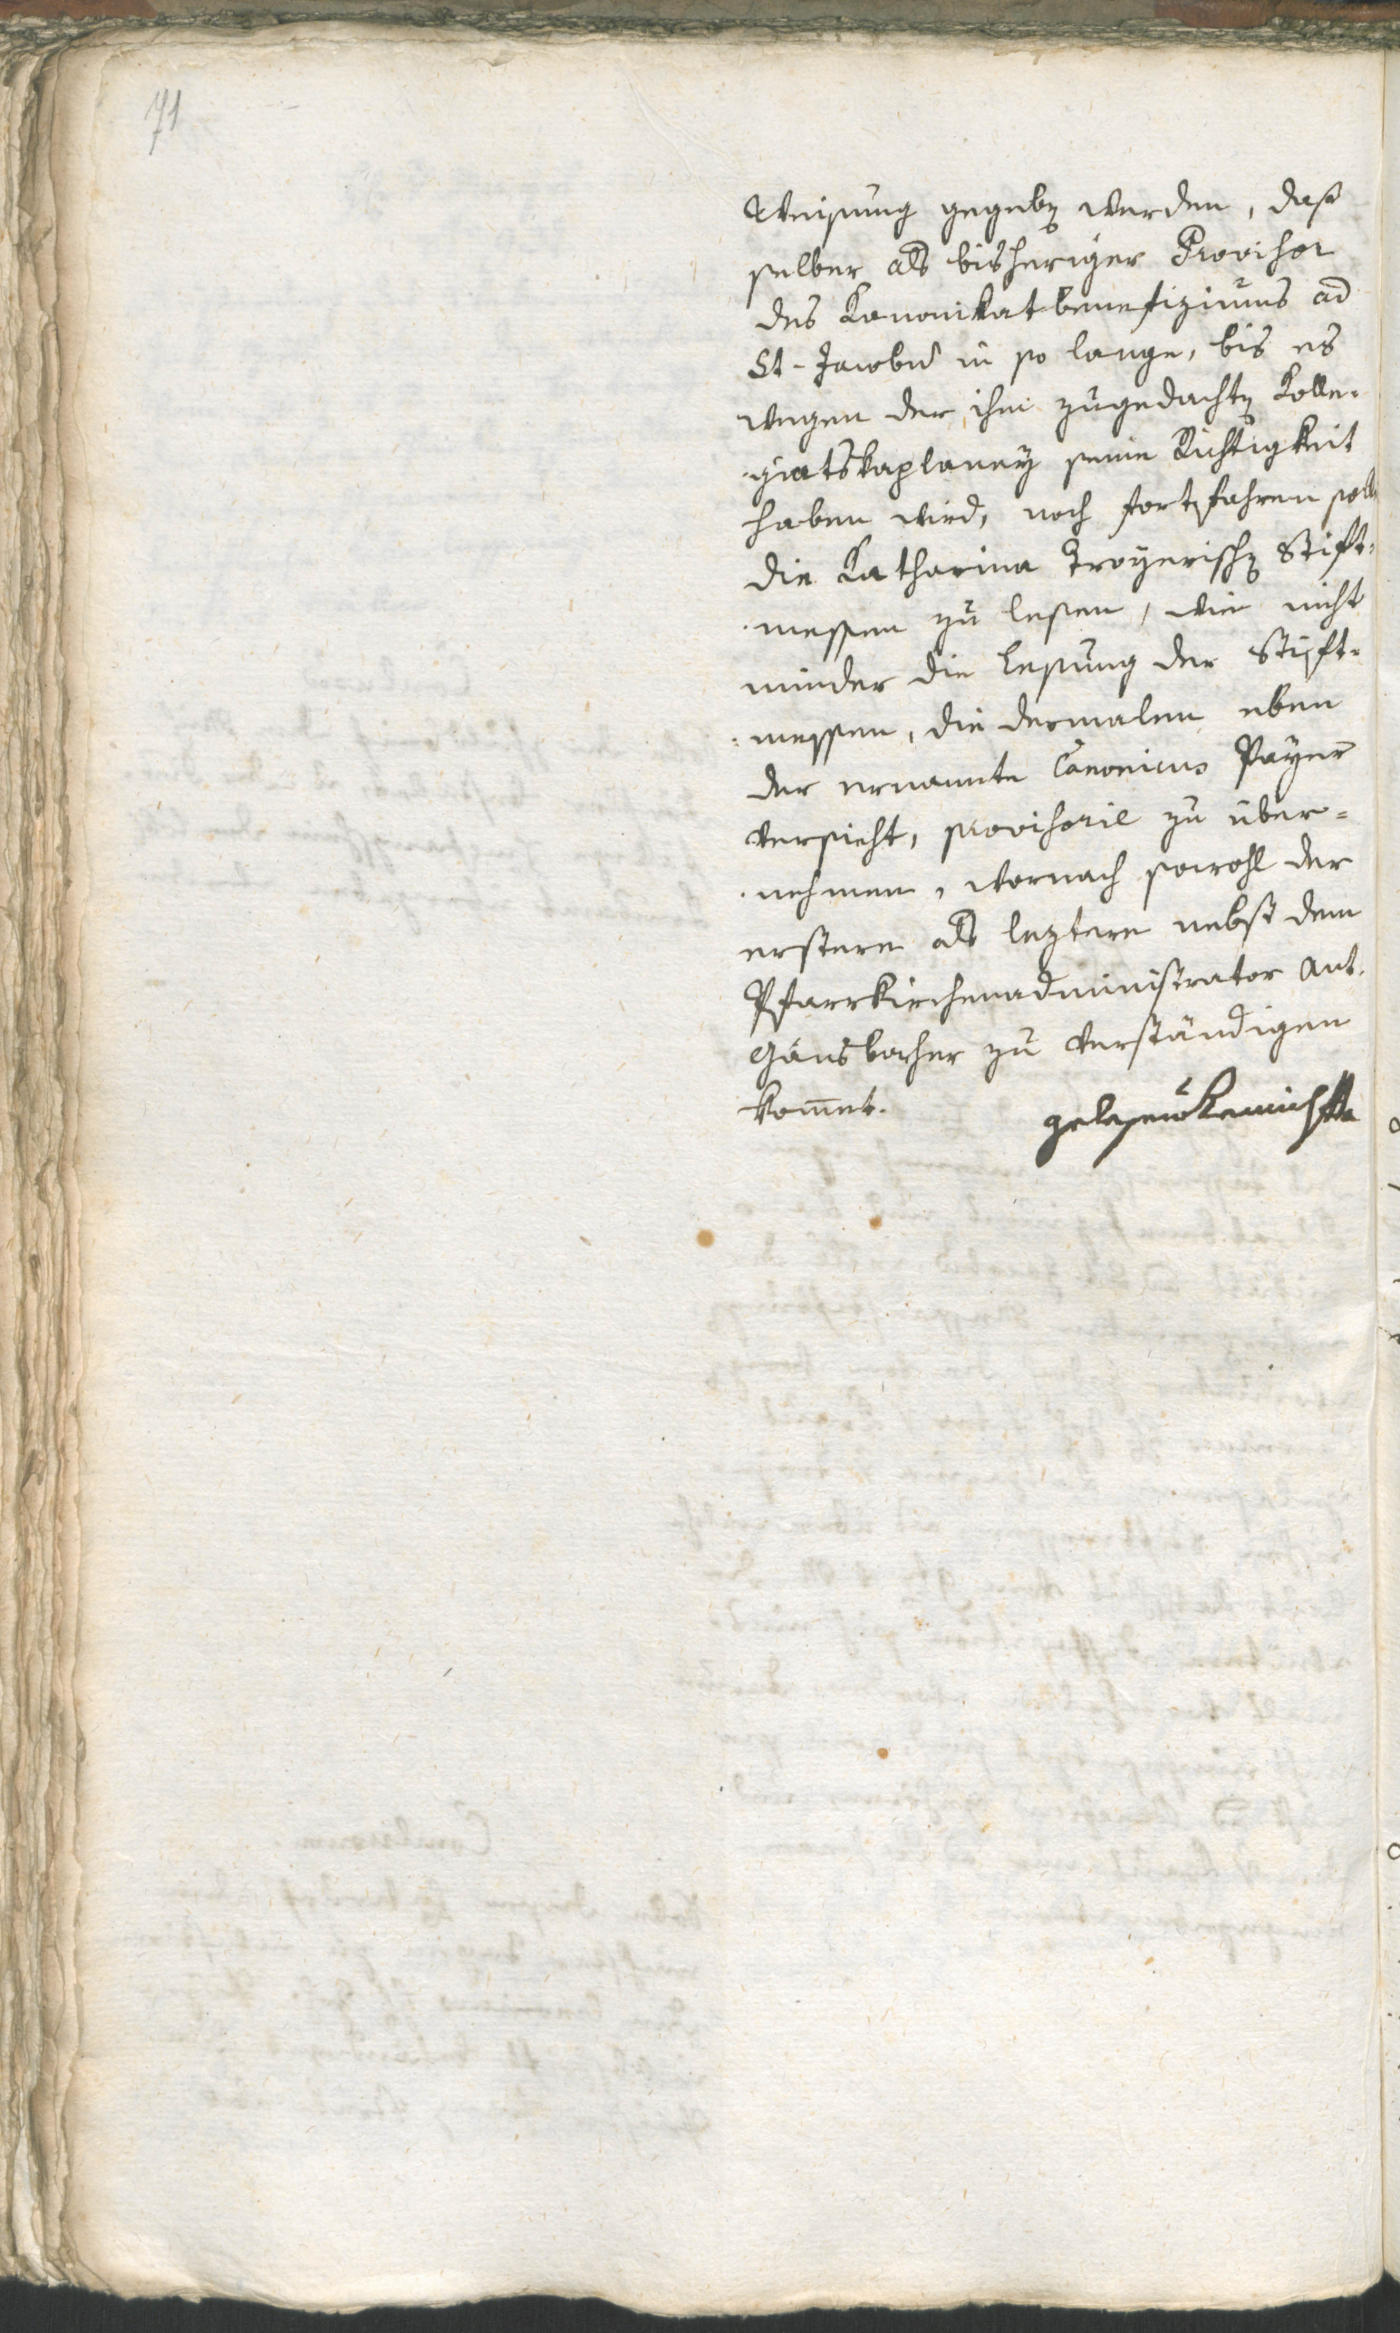 71
Weisung gegeben werden, daß
selber als bisheriger Provisor
des Kanonikatbenefiziums ad
St. Jacobū in so lange, bis es
wegen der ihm zugedachten Kolle-
giatskaplaney seine Richtigkeit
haben wird, noch fortfahren soll
die Katharina Troyerischen Stift-
messen zu lesen, wie nicht
minder die Lesung der Stift-
messen, die dermalen eben
der ernannte Canonicus Payer
versieht, provisorie zu über-
nehmen, wornach sowohl der
erstere als leztere nebst dem
Pfarrkirchenadministrator Ant.
Gänsbacher zu verständigen
kom̄et.
gelesen